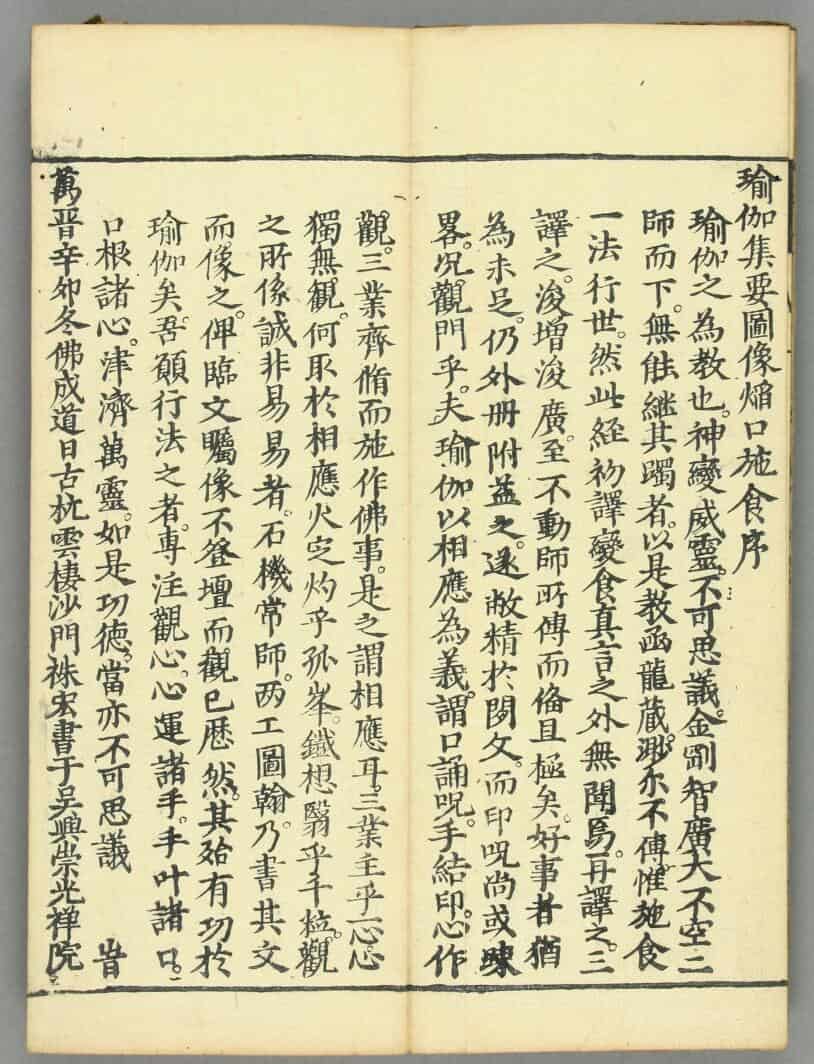 瑜伽集要圖像燄口施食序
瑜伽之為教也。神變威靈。不可思議。金剛智廣大不空二
師而下。無能継其躅者。以是教函龍蔵。渺尒不傳。惟施食
一法行世。然此経初譯變食真言之外無聞焉。再譯之。三
譯之。浚增浚廣。至不動師所傳而俻且極矣。好事者猶
為未足。仍外册附益之。遂敝精於閱文。而印呪尚或疎
畧。况觀門乎。夫瑜伽以相應為義。謂口誦呪。手結印。心作
觀。三業齊脩而施作佛事。是之謂相應耳。三業主乎一心。心
獨無観。何取於相應火定灼乎孤峯。鐵想翳乎千粒。觀
之所係誠非易易者。石機常師。丙工圖翰。乃書其文
而像之。俾臨文矚像不登壇而觀已歴然。其殆有功於
瑜伽矣。吾願行法之者。専注觀心。心運諸手。手叶諸口。
口根諸心。津濟萬靈。如是功德。當亦不可思議 旹
萬晋辛卯冬佛成道日古杭雲棲沙門袾宏書于吴興崇光禅院